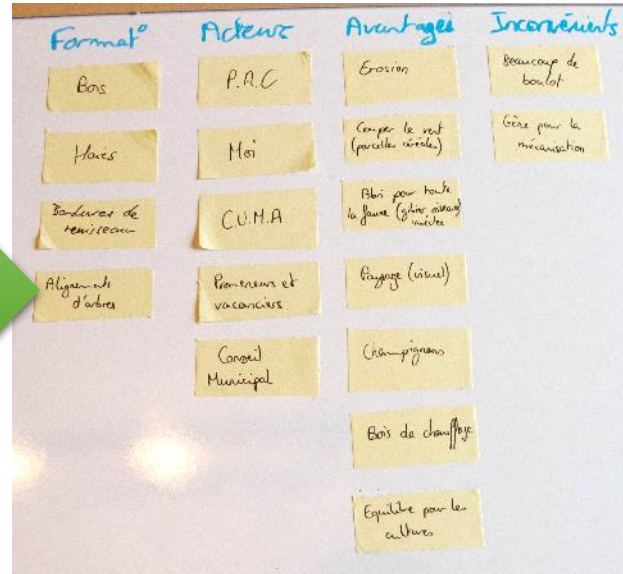 Format°
Bois
Haies
Bordures de
ruisseau
Alignements
d'arbres
Acteurs
P.A.C
Moi
C.U.M.A
Promeneurs et
vacanciers
Conseil
Municipal
Avantages
Erosion
Couper le vent
(parcelles céréales)
Abri pour toute
la faune (gibier oiseaux)
insectes
Paysage (visuel)
Champignons
Bois de chauffage
Equilibre pour les
cultures
Inconvénients
Beaucoup de
boulot
Gêne pour la
mécanisation